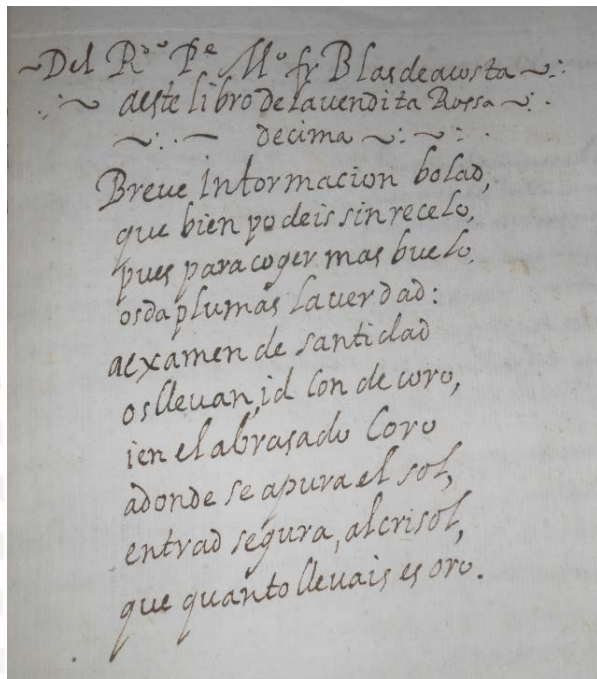 ~Del R.do P.e M.o fr Blas de acosta ~:·
·:~ a este libro de la vendita Rossa ~:·
~:·— decima ~:~:·
Breve informacion bolad,
que bien podeis sin recelo,
pues para coger mas buelo,
os da plumas la verdad:
a examen de santidad
os llevan, id con decoro,
i en el abrasado Coro
adonde se apura el sol,
entrad segura, al crisol,
que quanto llevais es oro.